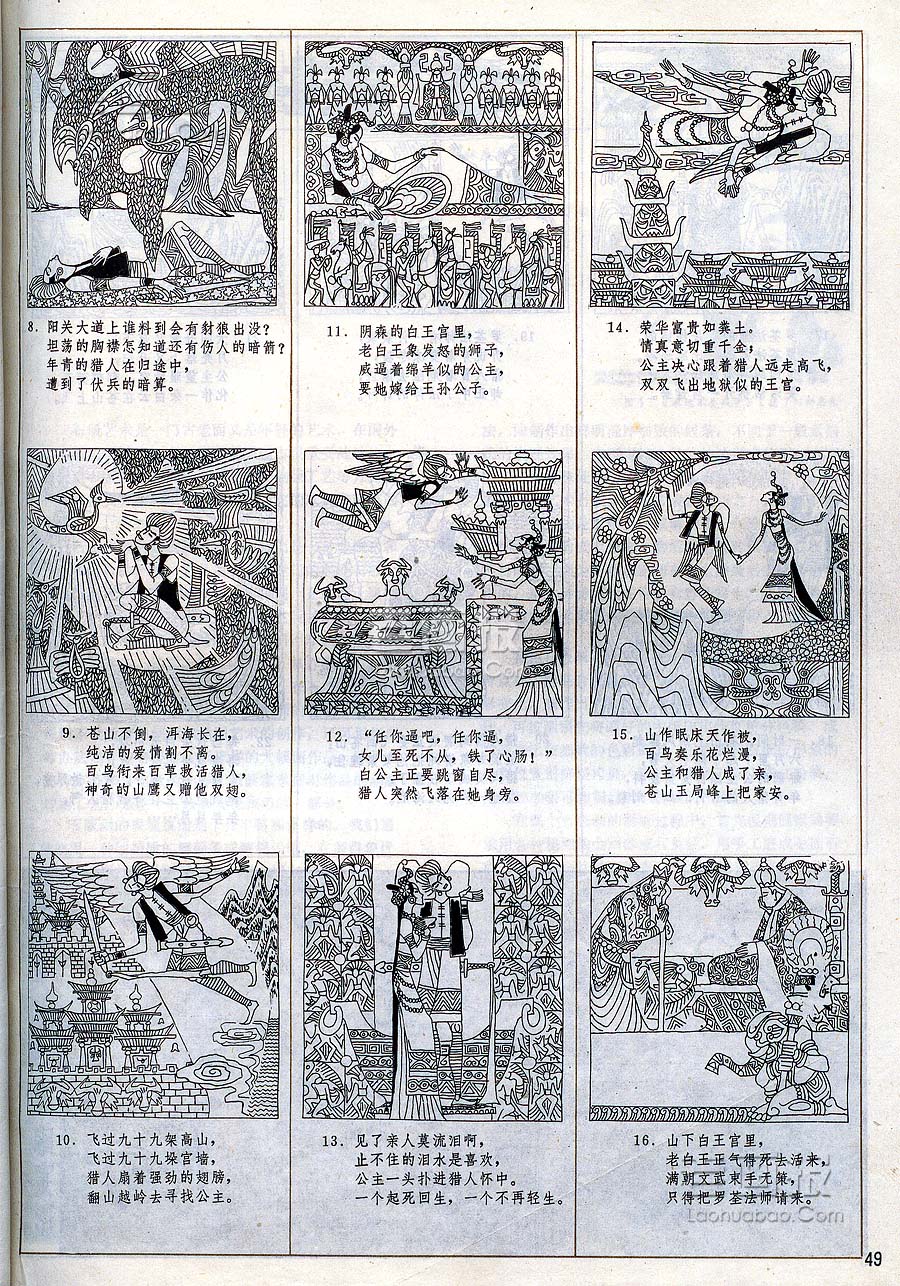 8．阳关大道上谁料到会有豺狼出没？
坦荡的胸襟怎知道还有伤人的暗箭？
年青的猎人在归途中，
遭到了伏兵的暗算。
9．苍山不倒，洱海长在，
纯洁的爱情割不离。
百鸟衔来百草救活猎人，
神奇的山鹰又赠他双翅。
10．飞过九十九架高山，
飞过九十九垛宫墙，
猎人扇着强劲的翅膀，
翻山越岭去寻找公主。
11．阴森的白王宫里，
老白王象发怒的狮子，
威逼着绵羊似的公主，
要她嫁给王孙公子。
12．“任你逼吧，任你逼，
女儿至死不从，铁了心肠！”
白公主正要跳窗自尽，
猎人突然飞落在她身旁。
13．见了亲人莫流泪啊，
止不住的泪水是喜欢，
公主一头扑进猎人怀中。
一个起死回生，一个不再轻生。
14．荣华富贵如粪土。
情真意切重千金；
公主决心跟着猎人远走高飞，
双双飞出地狱似的王宫。
15．山作眠床天作被，
百鸟奏乐花烂漫，
公主和猎人成了亲，
苍山玉局峰上把家安。
16．山下白王宫里，
老白王正气得死去活来，
满朝文武束手无策，
只得把罗荃法师请来。
Laonuabao.Com
49